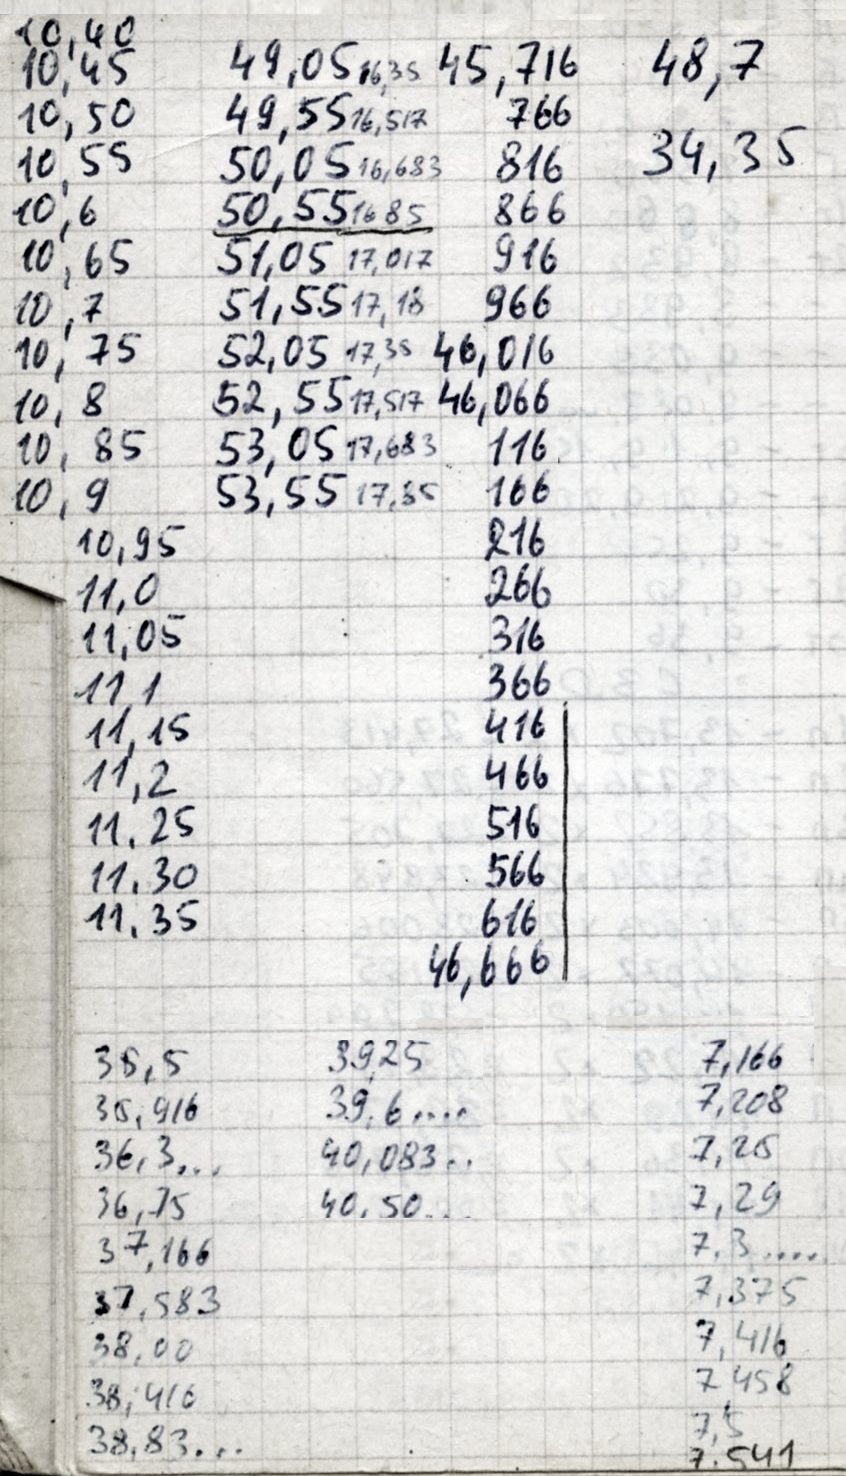 10,40
10,45 49,05 16,35 45,716 48,7
10,50 49,55 16,517 766
10,55 50,05 16,683 816 34,35
10,6 50,55 1685 866
10,65 51,05 17,017 916
10,7 51,55 17,18 966
10,75 52,05 17,35 46,016
10,8 52,55 17,517 46,066
10,85 53,05 17,683 116
10,9 53,55 17,85 166
10,95 216
11,0 266
11,05 316
11,1 366
11,15 416
11,2 466
11,25 516
11,30 566
11,35 616
46,666
35,5 39,25 7,166
35,916 39,6.... 7,208
36,3... 40,083.. 7,25
36,75 40,50... 7,29
37,166 7,3.....
37,583 7,375
38,00 7,416
38,416 7,458
38,83... 7,5
7.541